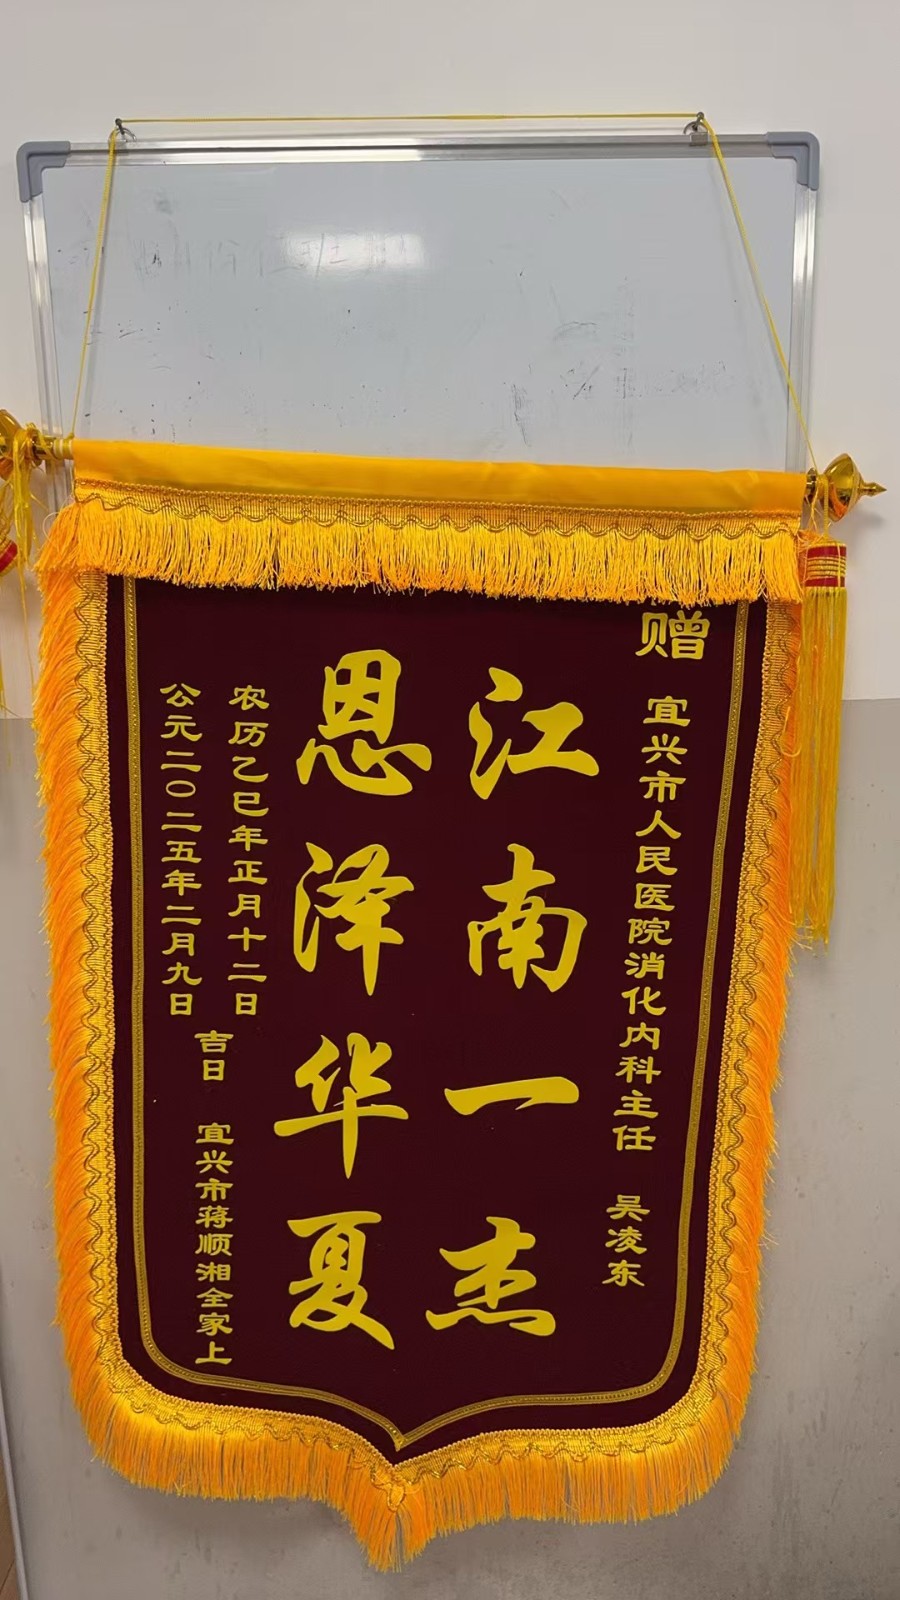 赠
宜兴市人民医院消化内科主任 吴凌东
江南一杰
恩泽华夏
农历乙巳年正月十二日
公元二〇二五年二月九日
吉日 宜兴市蒋顺湘全家上